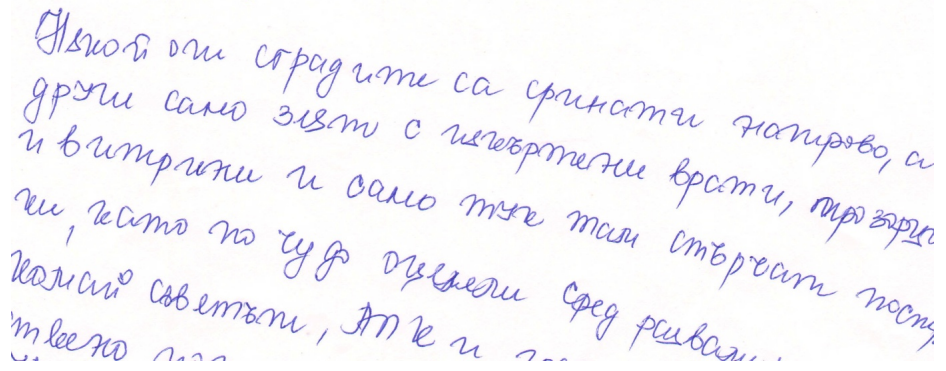 Някой оги страдите са сринати направо, а
други само зият с изкъртени врати, прозорци
и витрини и само тук там стърчат постр
ки, като по чудо оцелели сред развали
комай съветът, АПК и
твено